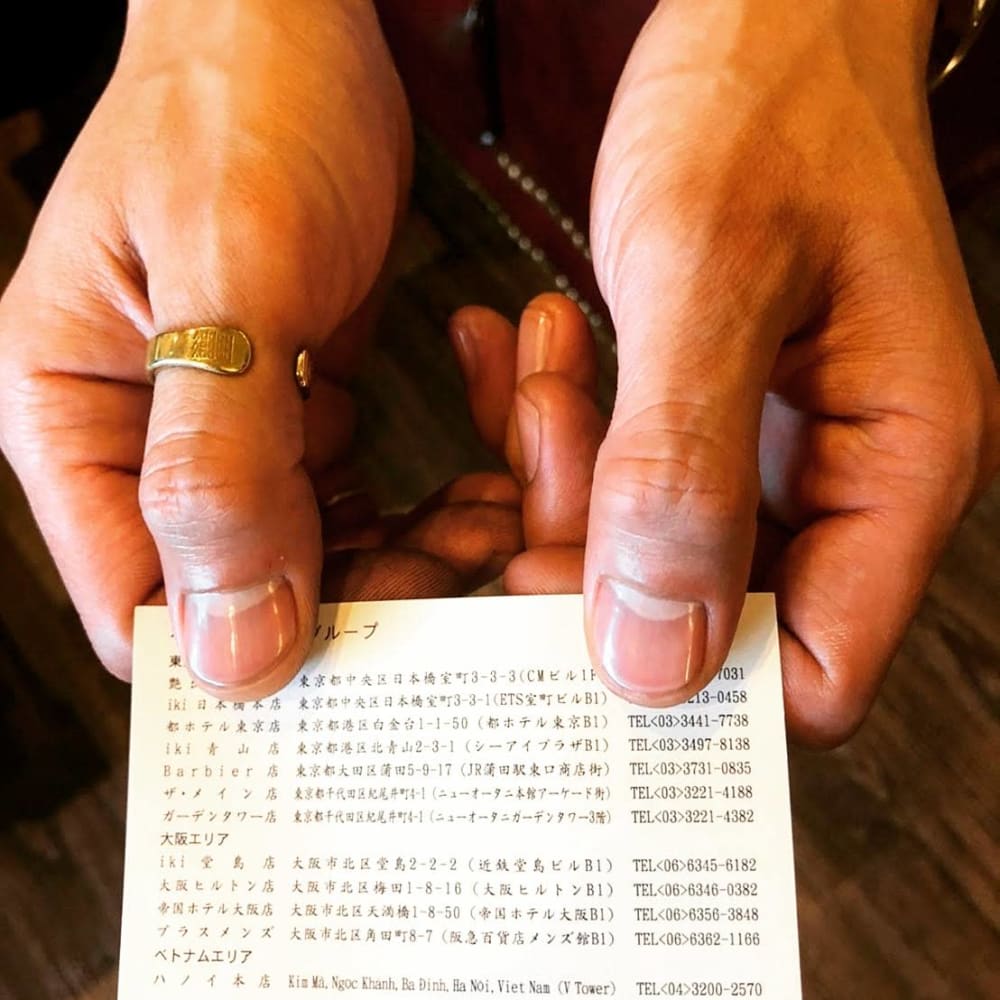 グループ
東
艶 東京都中央区日本橋室町3-3-3(CMビル1F 7031
iki日本橋本店 東京都中央区日本橋室町3-3-1(ETS室町ビルB1) 213-0458
都ホテル東京店 東京都港区白金台1-1-50 (都ホテル東京B1) TEL<03>3441-7738
iki 青山店 東京都港区北青山2-3-1 (シーアイプラザB1) TEL<03>3497-8138
Barbier 店 東京都大田区蒲田5-9-17 (JR蒲田駅東口商店街) TEL<03>3731-0835
ザ・メイン店 東京都千代田区紀尾井町4-1 (ニューオータニ本館アーケード街) TEL<03>3221-4188
ガーデンタワー店 東京都千代田区紀尾井町4-1 (ニューオータニガーデンタワー3階) TEL<03>3221-4382
大阪エリア
iki 堂島店 大阪市北区堂島2-2-2 (近鉄堂島ビルB1) TEL<06>6345-6182
大阪ヒルトン店 大阪市北区梅田1-8-16 (大阪ヒルトンB1) TEL<06>6346-0382
帝国ホテル大阪店 大阪市北区天満橋1-8-50 (帝国ホテル大阪B1) TEL<06>6356-3848
プラスメンズ 大阪市北区角田町8-7 (阪急百貨店メンズ館B1) TEL<06>6362-1166
ベトナムエリア
ハノイ本店 Kim Mã, Ngọc Khánh, Ba Đình, Ha Nôi, Viet Nam (V Tower) TEL<04>3200-2570